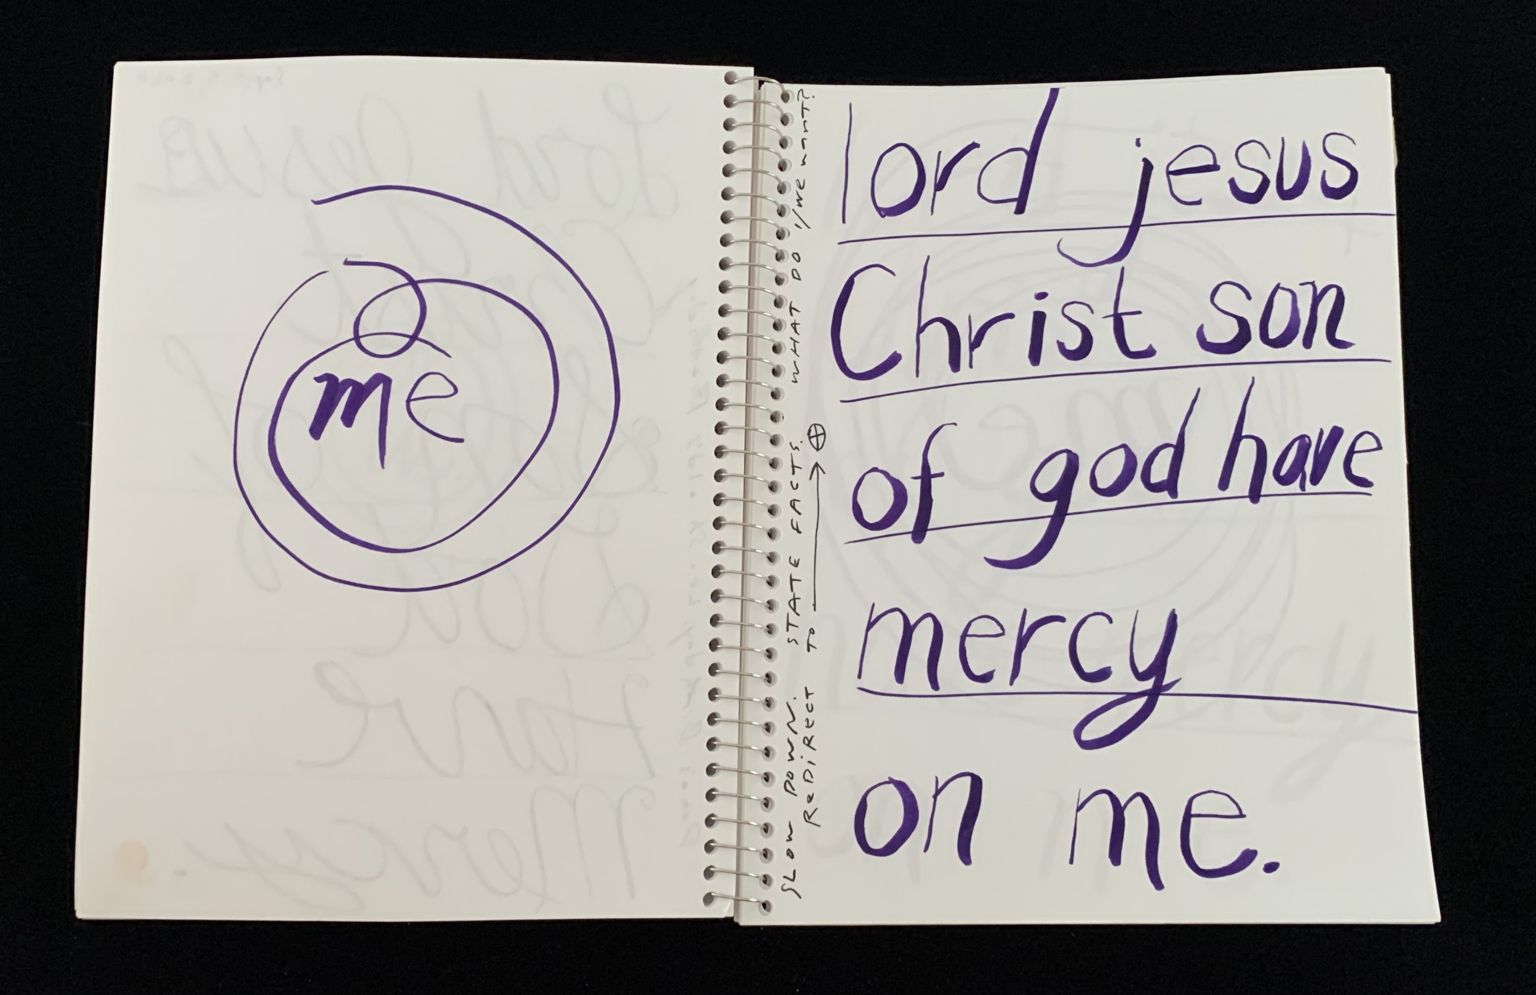 me
lord jesus
Christ son
of god have
mercy
on me.
SLOW DOWN. STATE FACTS. WHAT DO I/WE WANT?
ReDiRecT TO